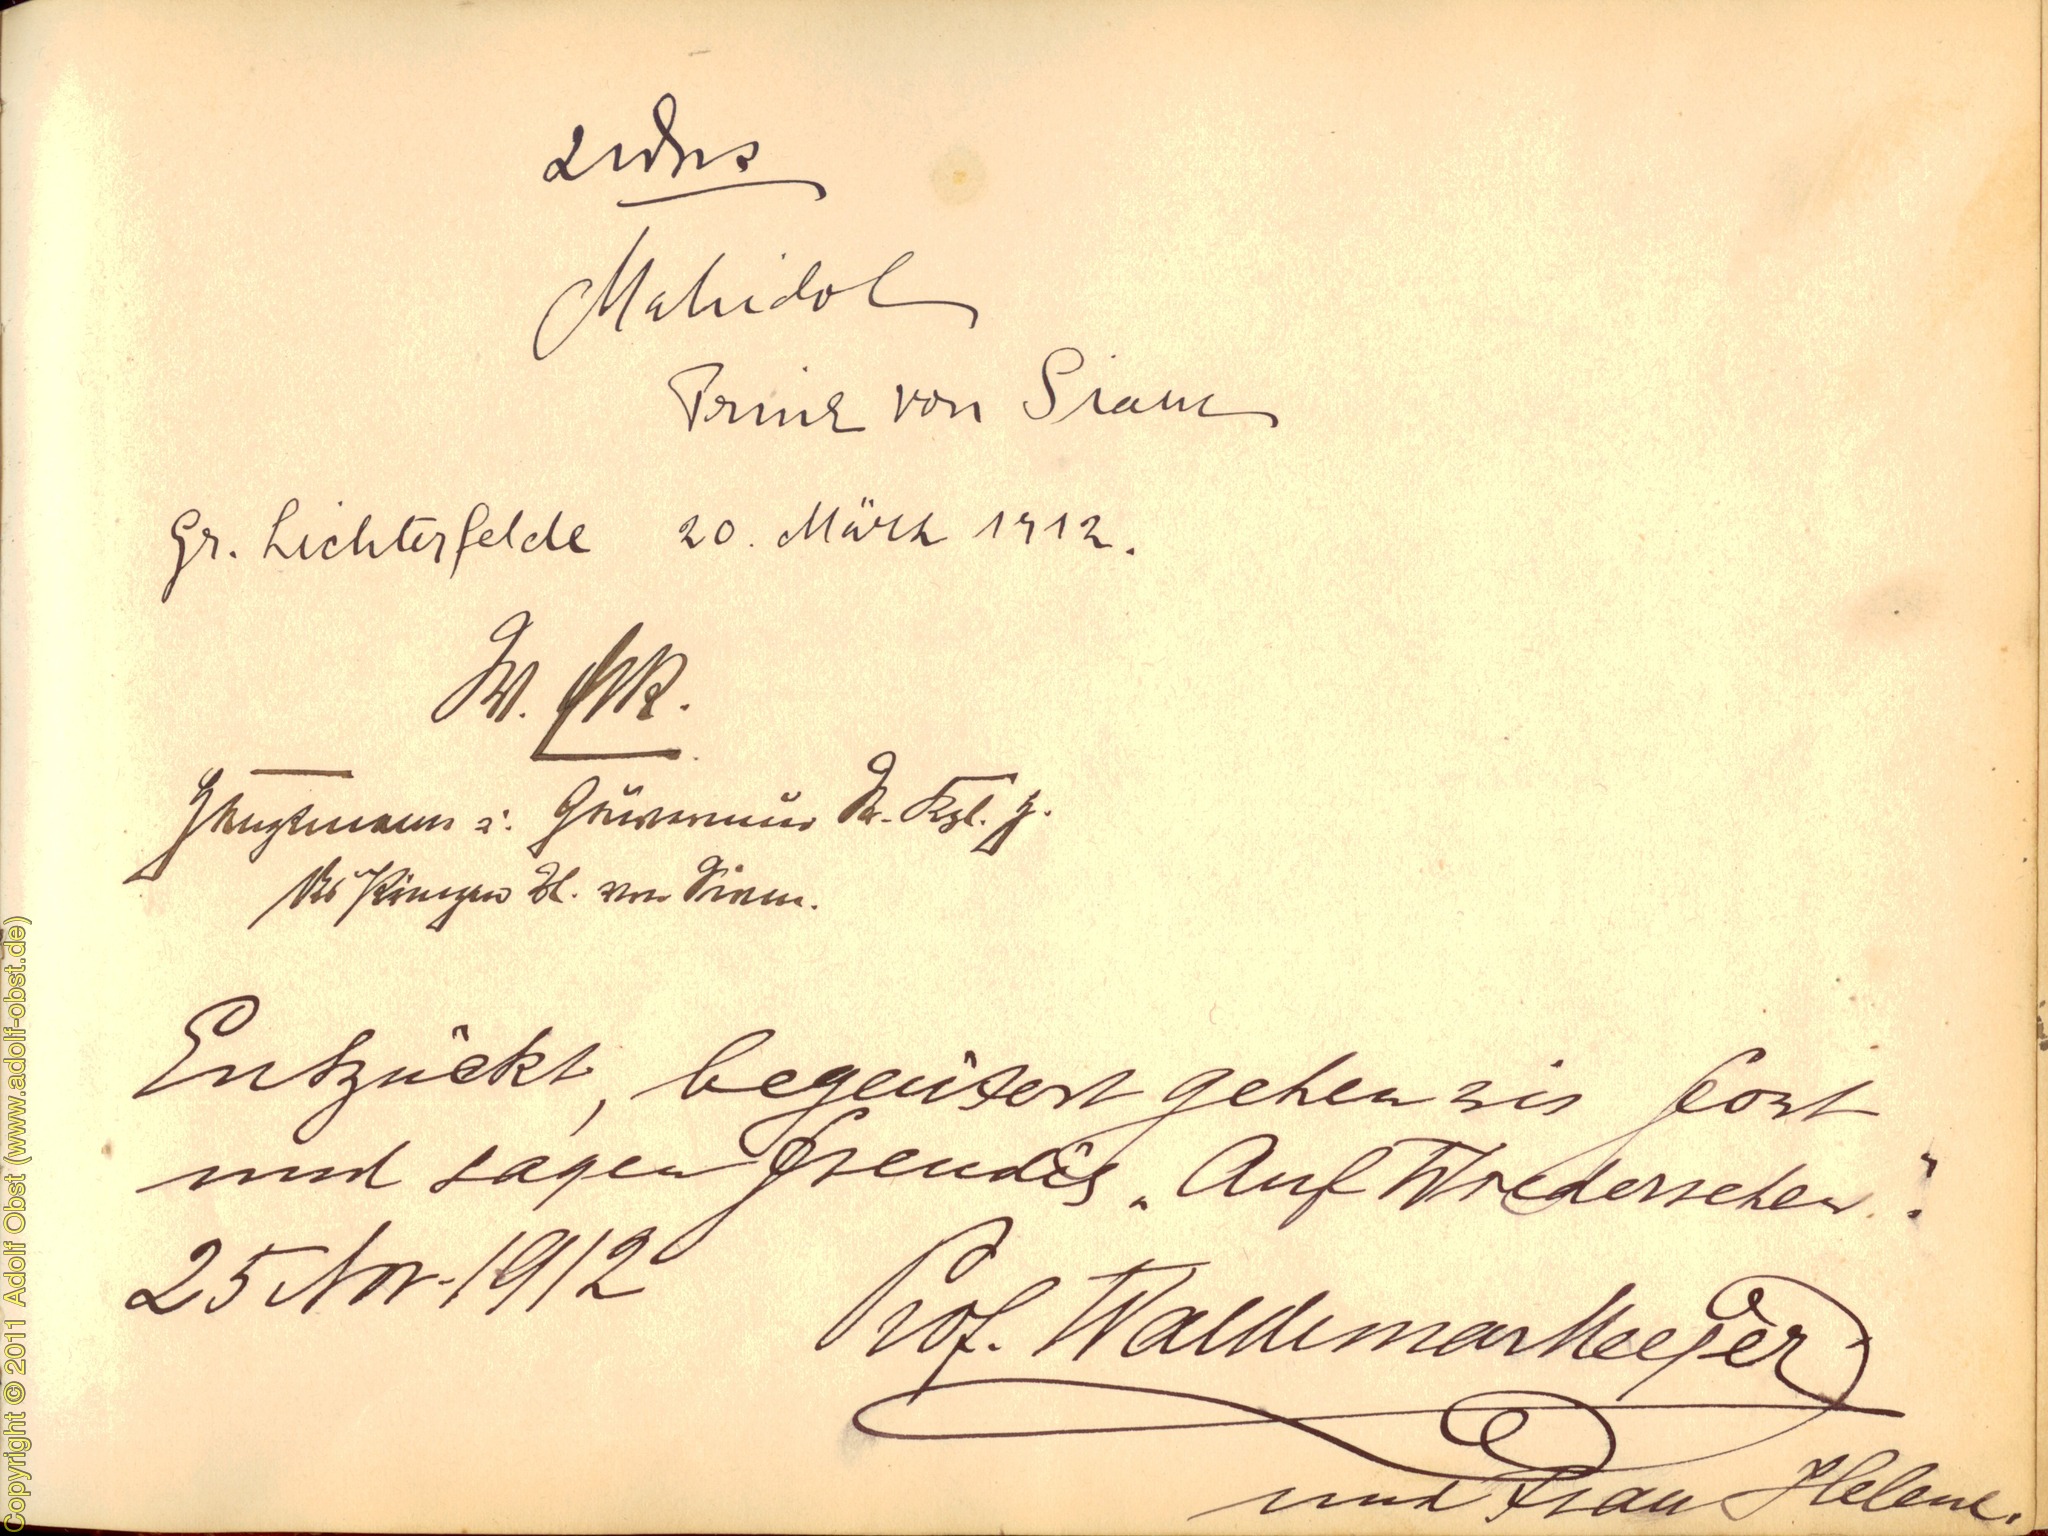 Mahidol
Prinz von Siam
Gr. Lichterfelde 20. März 1912.
W.
Hauptmann u. Gouverneur Sr. Kgl. H.
des Prinzen M. von Siam.
Entzückt, begeistert gehen wir fort
und sagen freudig „Auf Wiedersehen."
25 Nov. 1912
Prof. Waldemar Meyer
und Frau Helene.
Copyright © 2011 Adolf Obst (www.adolf-obst.de)